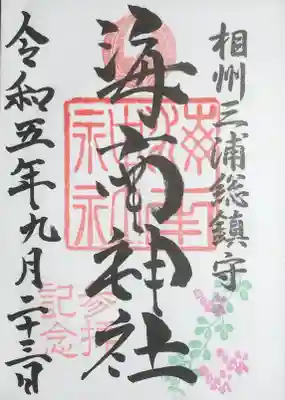 相州三浦総鎮守
海南神社
令和五年九月二十三日
海南神社
参拝
記念